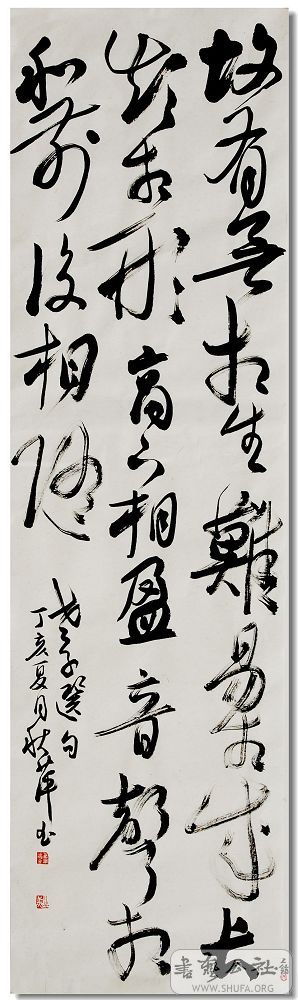 故有無相生難易相成長
短相形高下相盈音聲相
和前後相隨
老子選句
丁亥夏月書
書藝公社
WWW.SHUFA.ORG